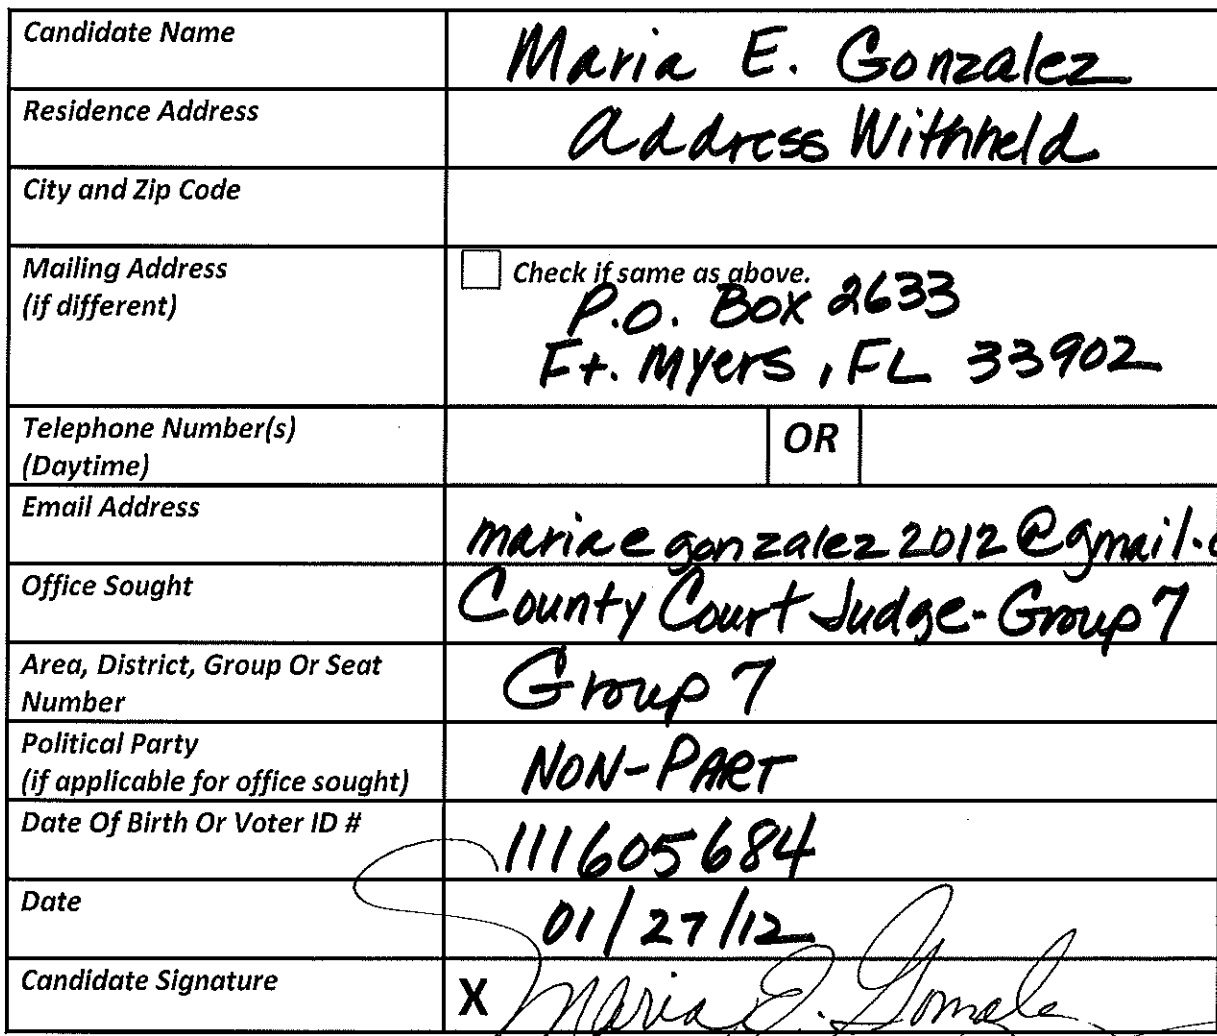 Candidate Name Maria E. Gonzalez
Residence Address Address Withheld
City and Zip Code
Mailing Address
(if different)
Check if same as above.
P.O. Box 2633
Ft. Myers, FL 33902
Telephone Number(s)
(Daytime)
OR
Email Address mariaegonzalez2012@gmail.c
Office Sought County Court Judge-Group 7
Area, District, Group Or Seat
Number
Group 7
Political Party
(if applicable for office sought)
NON-PART
Date Of Birth Or Voter ID # 111605684
Date 01/27/12
Candidate Signature X Maria E. Gonzale